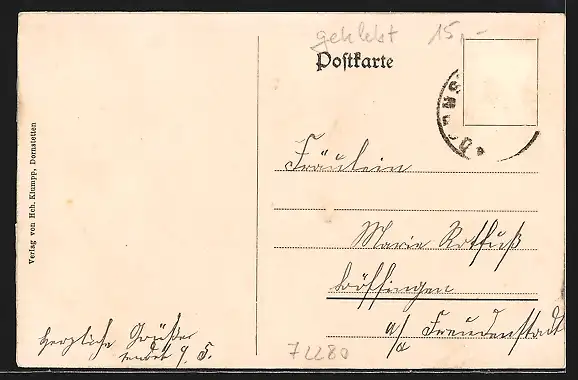 geklebt 15,-
Postkarte
Fräulein
Marie Rothfuß
Böffingen
a/ Freudenstadt
herzliche Grüße
sendet
72280
Verlag von Hch. Klumpp, Dornstetten